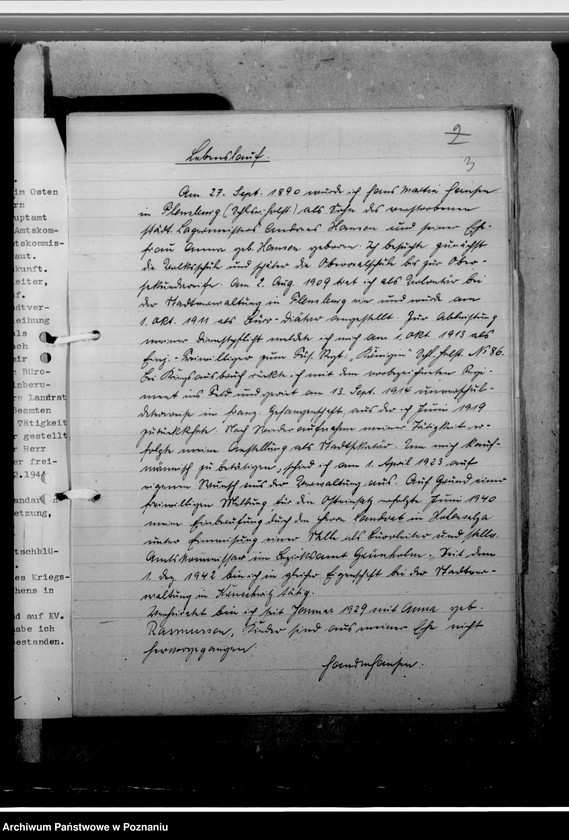 im Osten
ern
uptamt
Amtskom-
tskommis-
aut.
kunft.
eiter,
f.
dtver-
leihung
als
ach
mir
Büro-
inberu-
rn Landrat
Beamten
Tätigkeit
r gestellt
r Herr
er frei-
2.194
andar
etzung,
tschblü-
es Kriegs-
hens in
d auf KV.
abe ich
estanden.
2
3
Lebenslauf.
Am 27. Sept. 1890 wurde ich Hans Martin Hansen
in Flensburg (Schlesw. Holst) als Sohn des verstorbenen
städt. Lagermeisters Andreas Hansen und seiner Ehe-
frau Anna geb. Hansen geboren. Ich besuchte zunächst
die Volksschule und später die Oberrealschule bis zur Ober-
sekundareife. Am 2. Aug. 1909 trat ich als Volontär bei
der Stadtverwaltung in Flensburg ein und wurde am
1. Okt. 1911 als Büro-Diätar angestellt. Zur Ableistung
meiner Dienstpflicht meldete ich mich am 1. Okt 1913 als
Einj.-Freiwilliger zum Füs. Regt. "Königin" Schl. Holst. № 86.
Bei Kriegsausbruch rückte ich mit dem vorbezeichneten Regi-
ment ins Feld und geriet am 13. Sept. 1914 unverschul-
deterweise in franz. Gefangenschaft, aus der ich Juni 1919
zurückkehrte. Nach Wiederaufnahme meiner Tätigkeit er-
folgte meine Anstellung als Stadtsekretär. Um mich kauf-
männisch zu betätigen, schied ich am 1. April 1923 auf
eigenen Wunsch aus der Verwaltung aus. Auf Grund einer
freiwilligen Meldung für den Osteinsatz erfolgte Juni 1940
meine Einberufung durch den Herrn Landrat in Hohensalza
unter Einweisung einer Stelle als Büroleiter und stellv.
Amtskommissar im Bezirksamt Grünholm. Seit dem
1. Dez. 1942 bin ich in gleicher Eigenschaft bei der Stadtver-
waltung in tätig.
Verheiratet bin ich seit Januar 1929 mit Anna geb.
Rasmussen, Kinder sind aus meiner Ehe nicht
hervorgegangen.
Hans M Hansen.
Archiwum Państwowe w Poznaniu